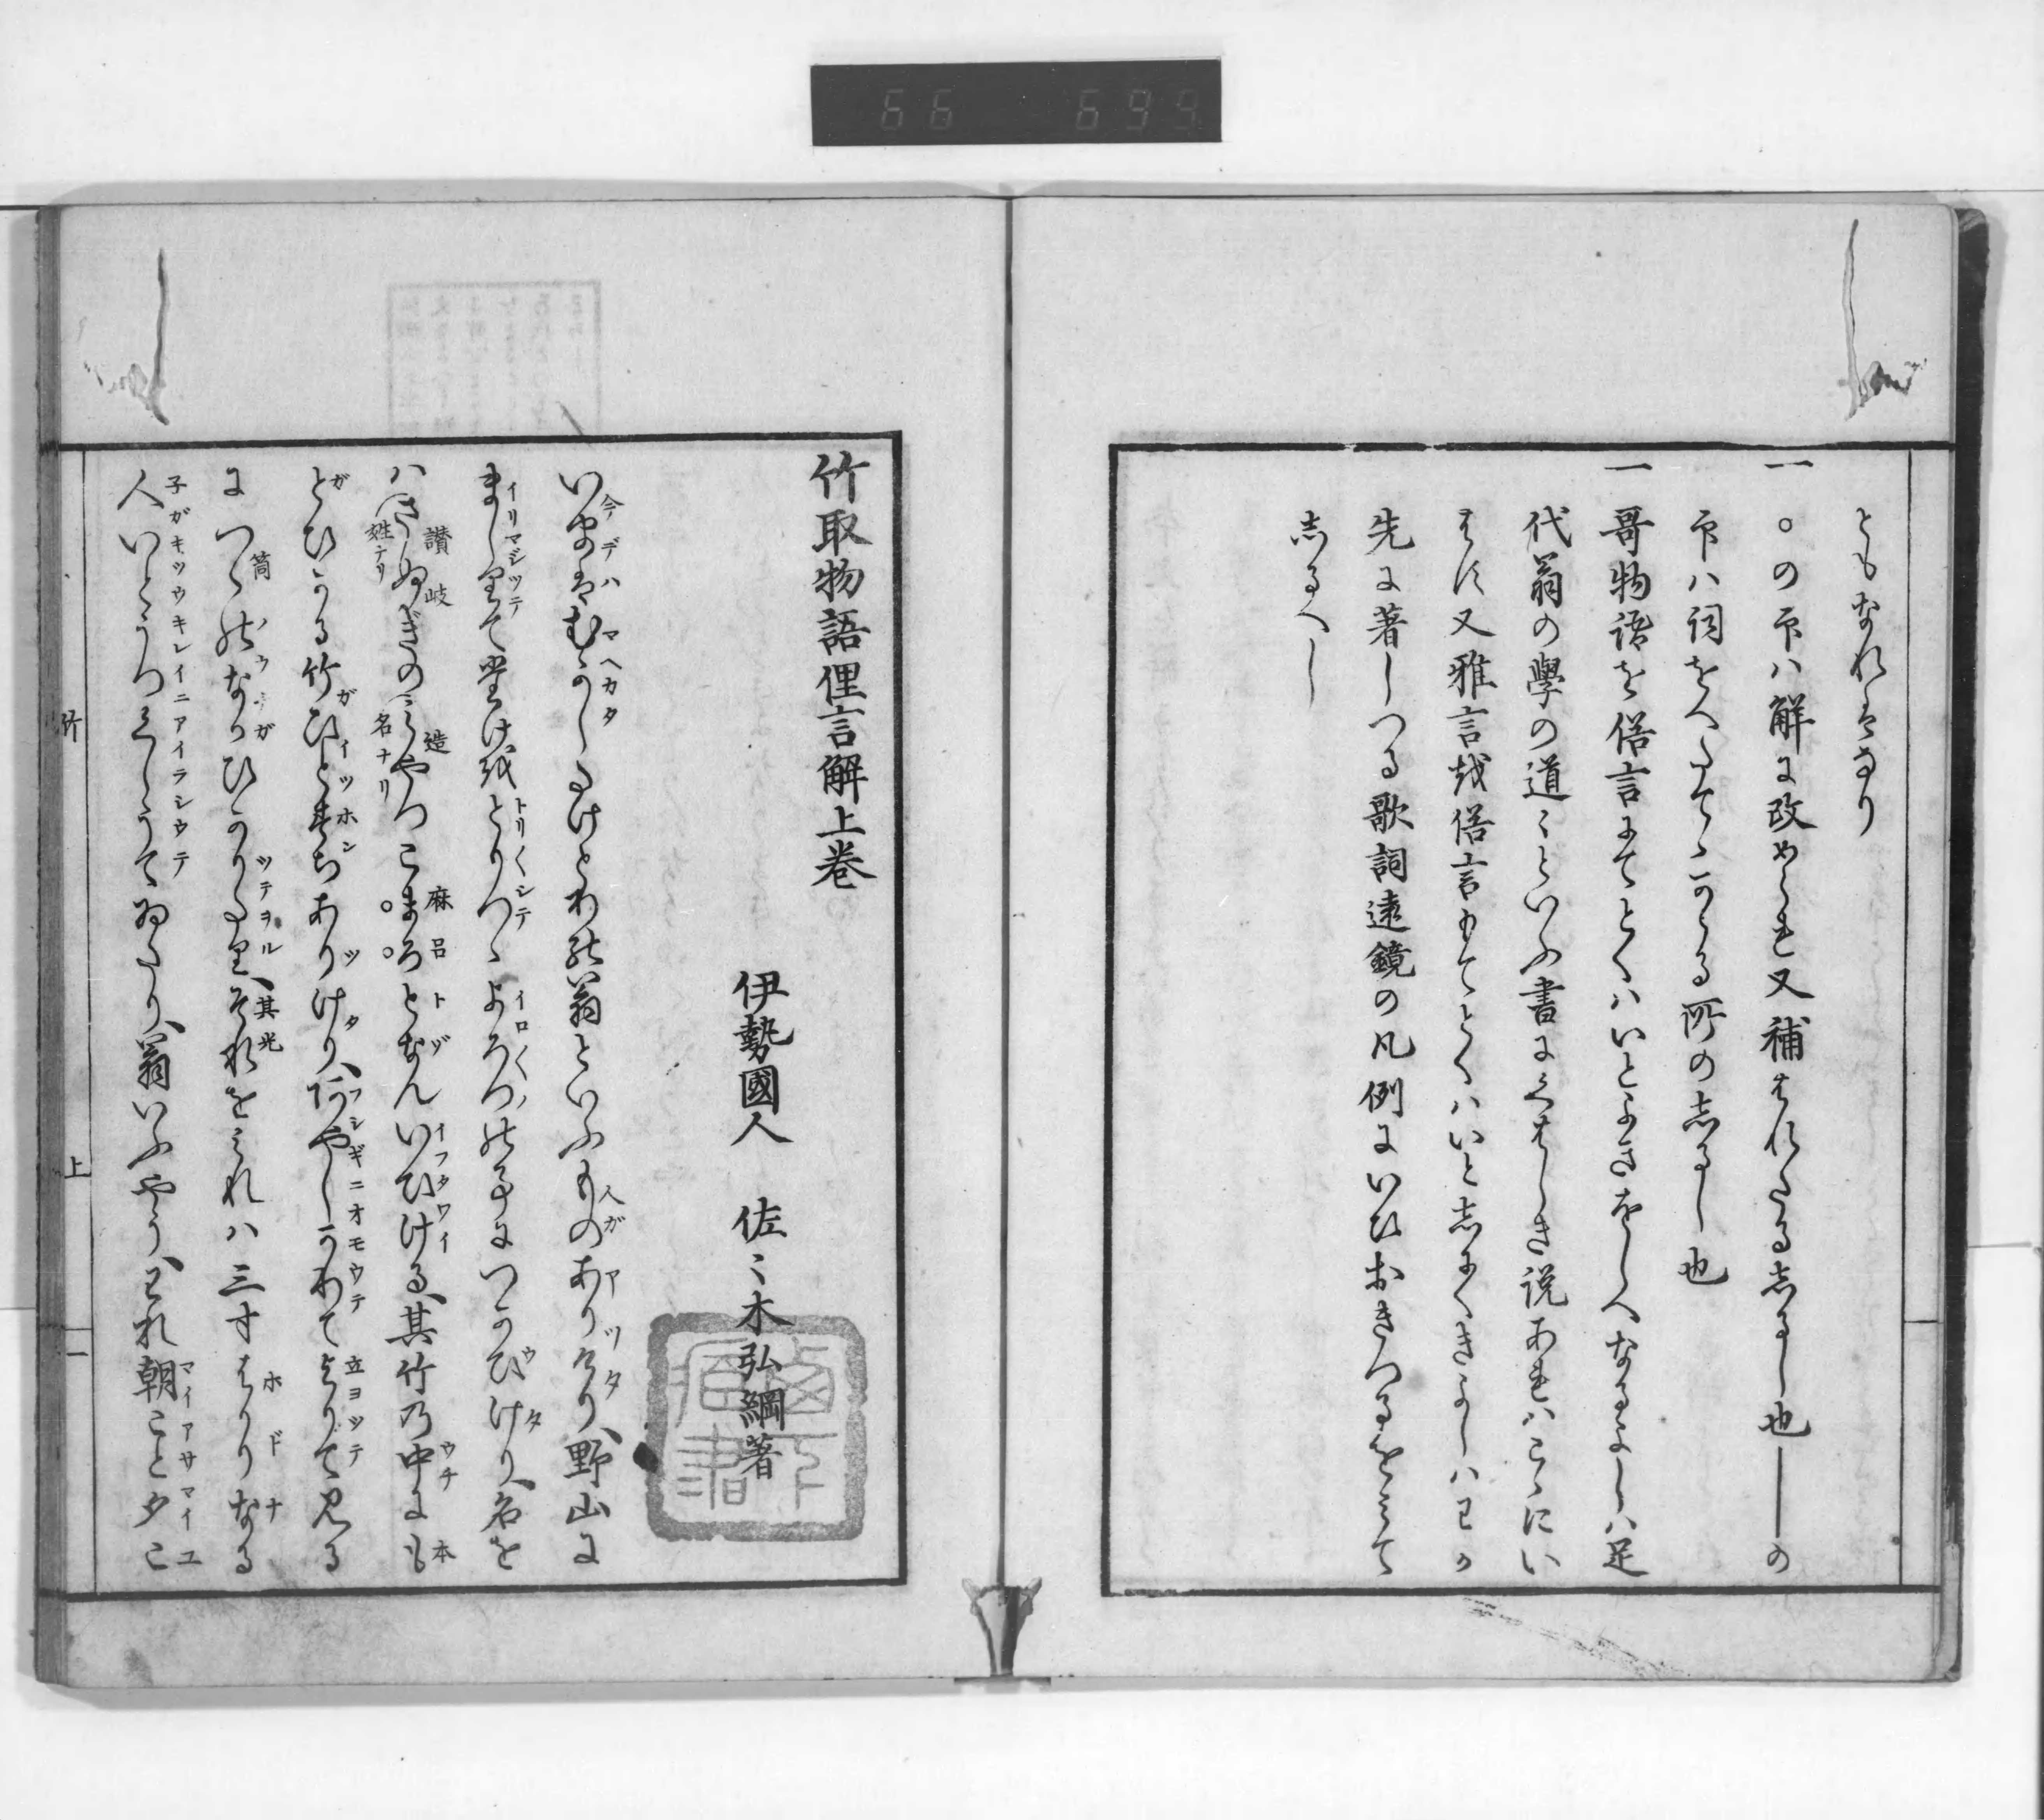 66 699
ともなれはなり
一 ○の印ハ解に改められ又補はれたるしるし也――の
印ハ詞をへたてゝかゝる所のしるし也
一 哥物語を俗言にてとくハいとよきをしへなるよしハ足
代翁の學の道〻といふ書にくはしき説あれハこゝにい
はす又雅言を俗言もてとくハいとしにくきよしハわか
先に著しつる歌詞遠鏡の凡例にいひおきつるをみて
しるへし
竹取物語俚言解上巻
伊勢國人 佐〻木弘綱著
いまはむかしたけとりの翁といふものありけり、野山に
今デハ マヘカタ 人ガ アツタ
ましりて竹を とりつゝよろつの事につかひけり、名を
イリマジツテ トリ〱シテ イロ〱ノ ウタ
ハさぬきのみやつこまろとなんいひける、其竹乃中にも
讃岐 姓ナリ 造 名ナリ 麻呂 トゾ イフタワイ ウチ 本
とひかる竹ひとすちありけり、あやしかりて よりて見る
ガ ガ イツホン ツタ フシギニオモウテ 立ヨツテ
につゝの なかひかりたり、それをみれハ三寸はかりなる
筒ノウチガ ツテヲル 其光 ホドナ
人いとうつくしうてゐたり、翁いふやう、われ朝こと夕こ
子ガキツウキレイニアイラシウテ マイアサマイユ
竹 上 一